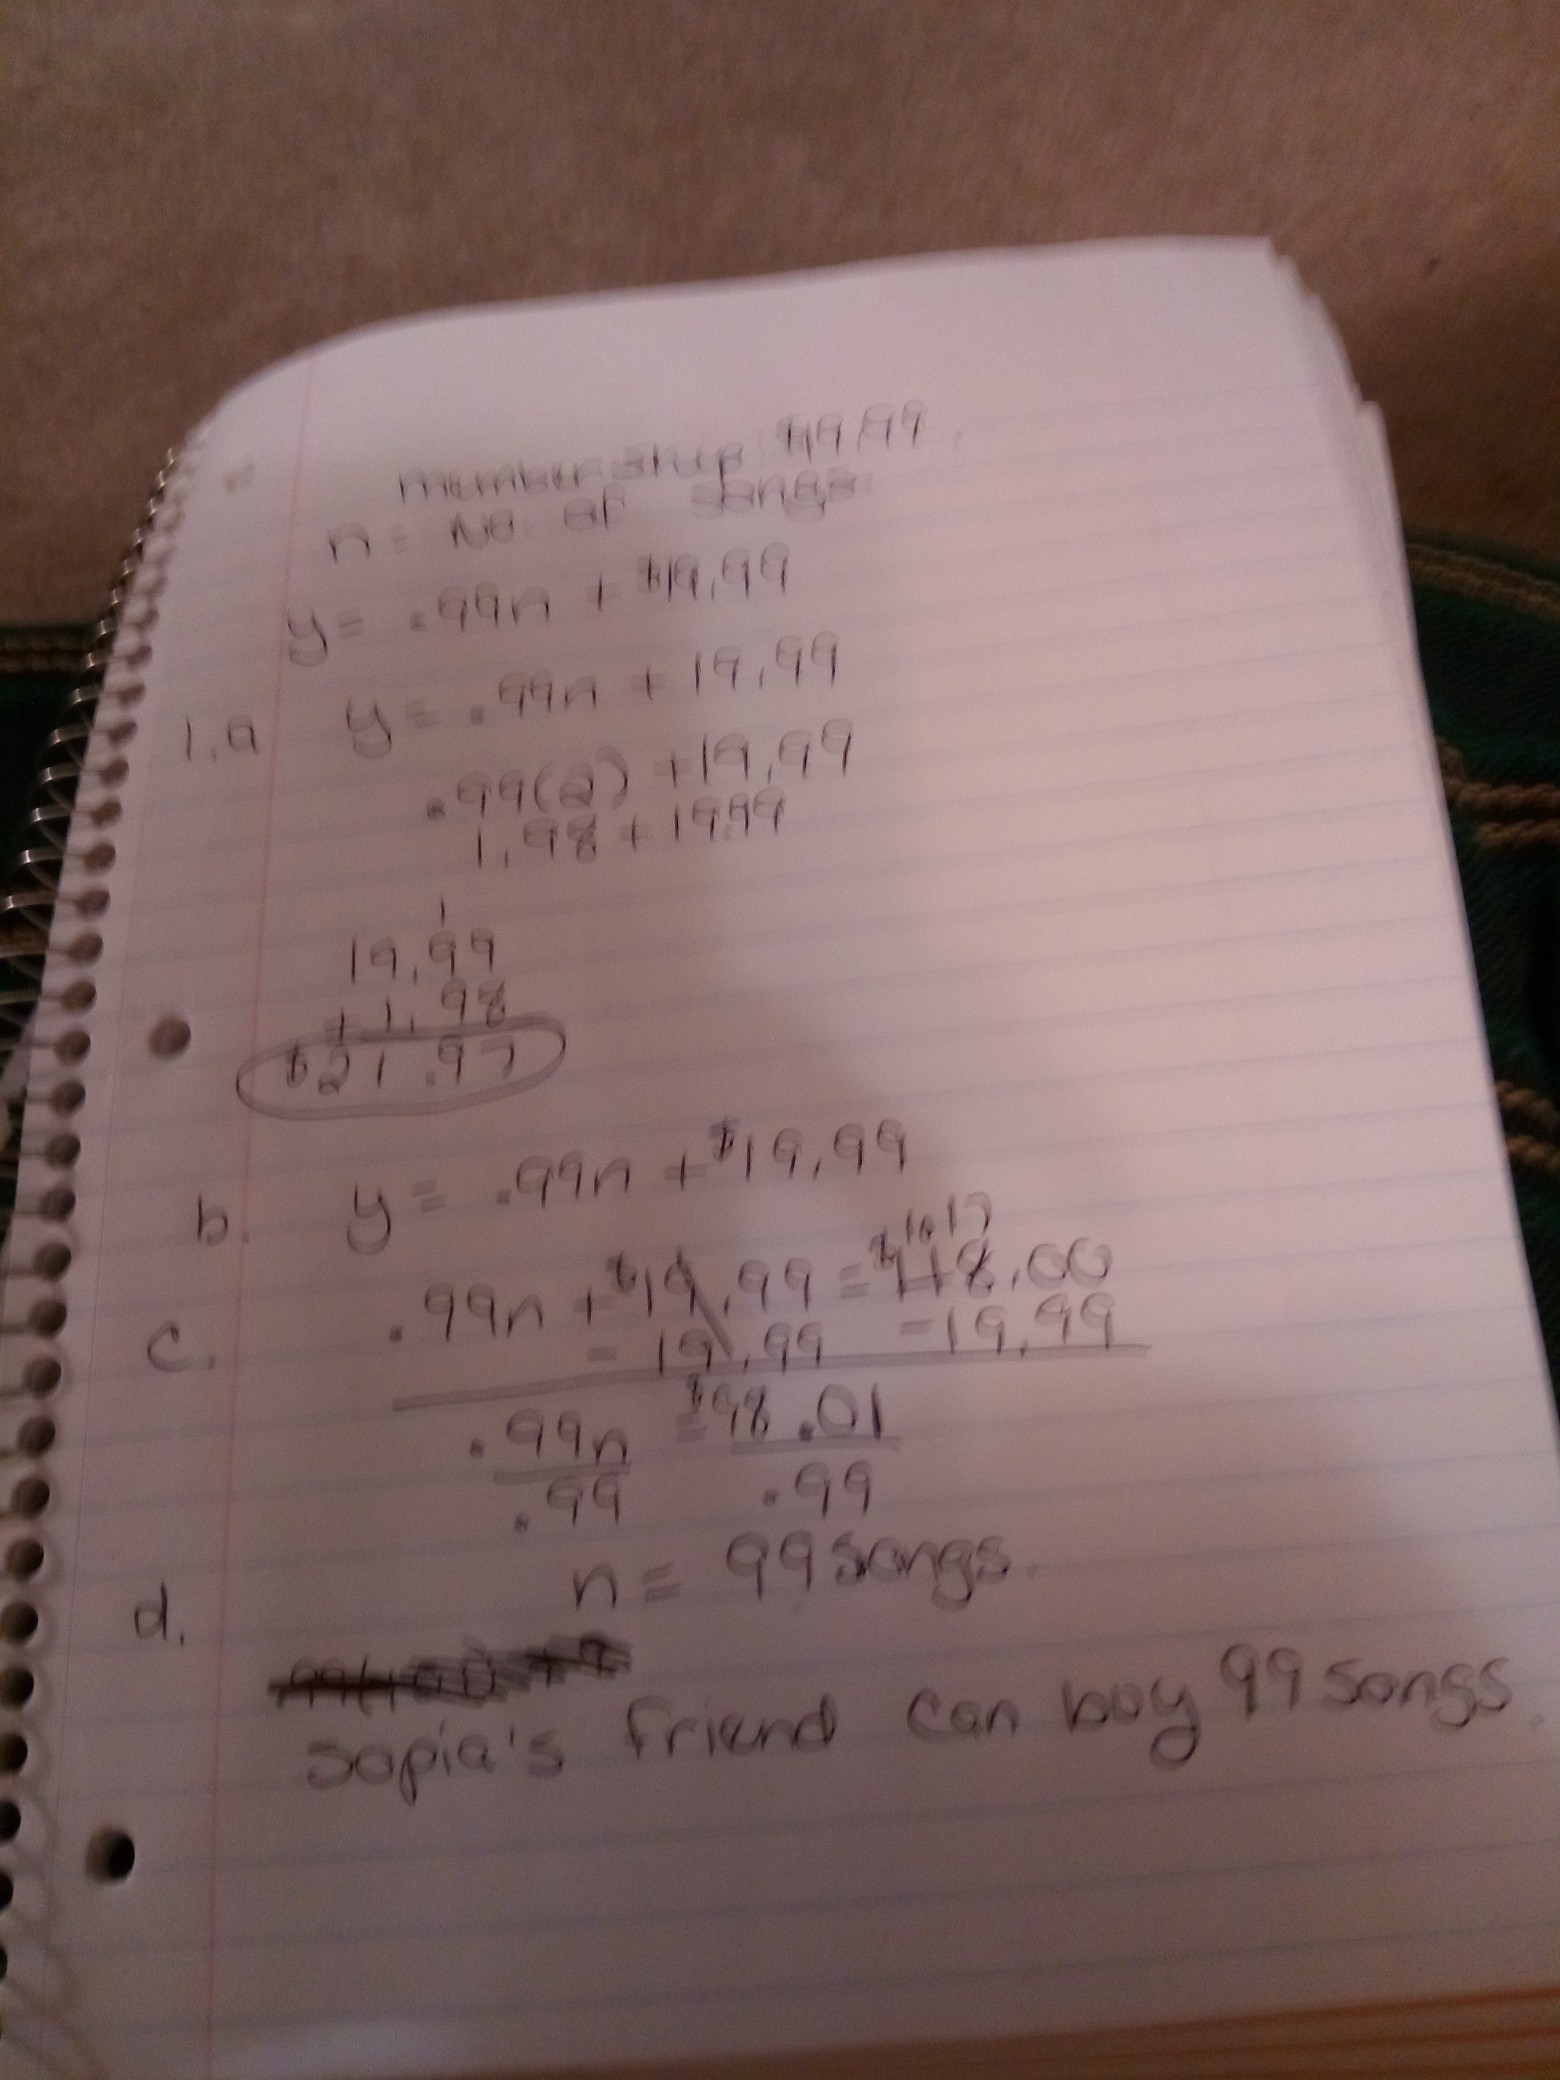 membership $19.99.
n = No. of songs
y = .99n + $19.99
1.a y = .99n + 19.99
.99(2) + 19.99
1.98 + 19.99
1
19.99
+ 1.98
$21.97
b. y = .99n + $19.99
10 17
c. .99n + $19.99 = $118.00
- 19.99 - 19.99
.99n = $98.01
.99 .99
n = 99 songs.
d.
sopia's friend can buy 99 songs.